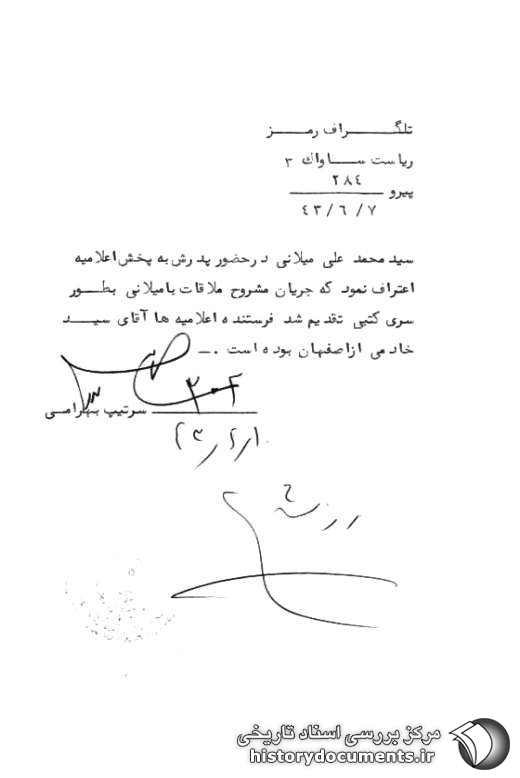 تلگراف رمز
ریاست ساواك ۳
پیرو ۲۸٤
٤۳/٦/۷
سید محمد علی میلانی درحضور پدرش به پخش اعلامیه
اعتراف نمود که جریان مشروح ملاقات با میلانی بطور
سری کتبی تقدیم شد فرستنده اعلامیه ها آقای سید
خادمی ازاصفهان بوده است .ــ
سرتیپ بهرامی
مرکز بررسی اسناد تاریخی
historydocuments.ir